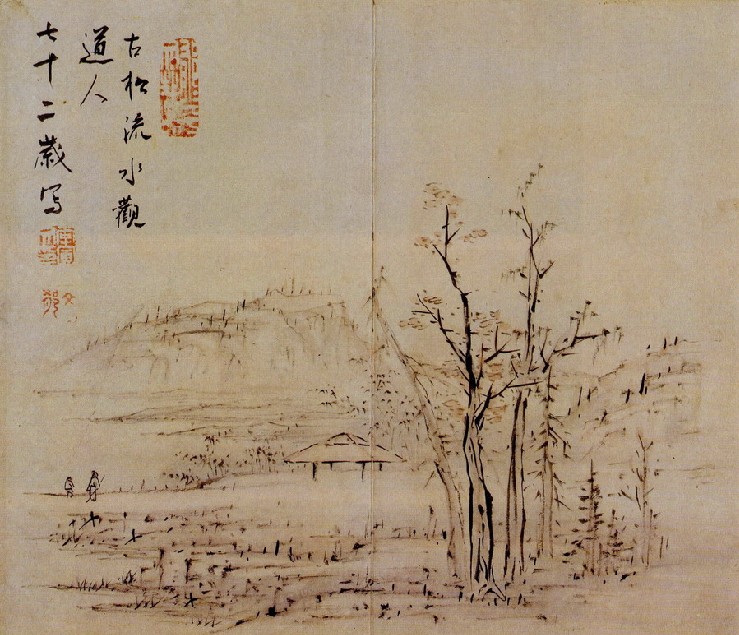 古松流水觀
道人
七十二歲写